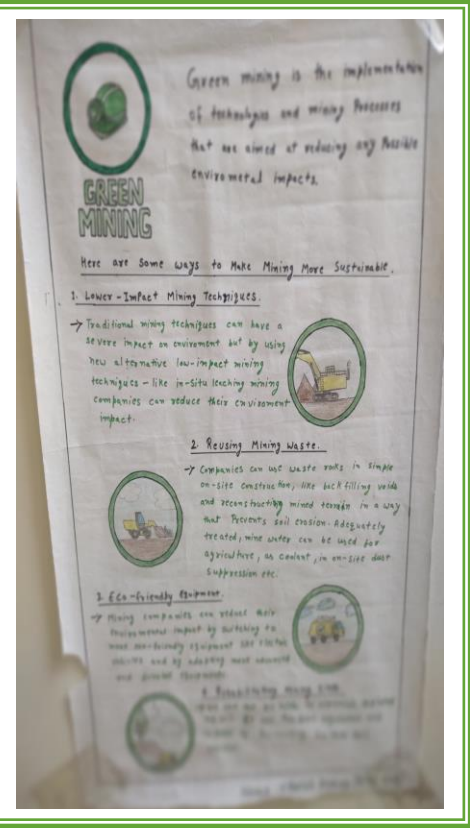 Green mining is the implementation
of technologies and mining Processes
that are aimed at reducing any Possible
envirometal impacts.
GREEN
MINING
Here are Some ways to Make Mining More Sustainable.
1. Lower-Impact Mining Techniques.
→ Traditional mining techniques can have a
severe impact on enviroment but by using
new alternative low-impact mining
techniques - like in-Situ leaching mining
companies can reduce their enviroment
impact.
2. Reusing Mining Waste.
→ Companies can use waste rocks in simple
on-site construction, like backfilling voids
and reconstructing mined terrain in a way
that Prevents soil erosion. Adequately
treated, mine water can be used for
agriculture, as coolant, in on-site dust
suppression etc.
3. Eco-friendly Equipment.
→ Mining companies can reduce their
environmental impact by switching to
more eco-friendly equipment like electric
and by adopting most advanced
and
4. Mining